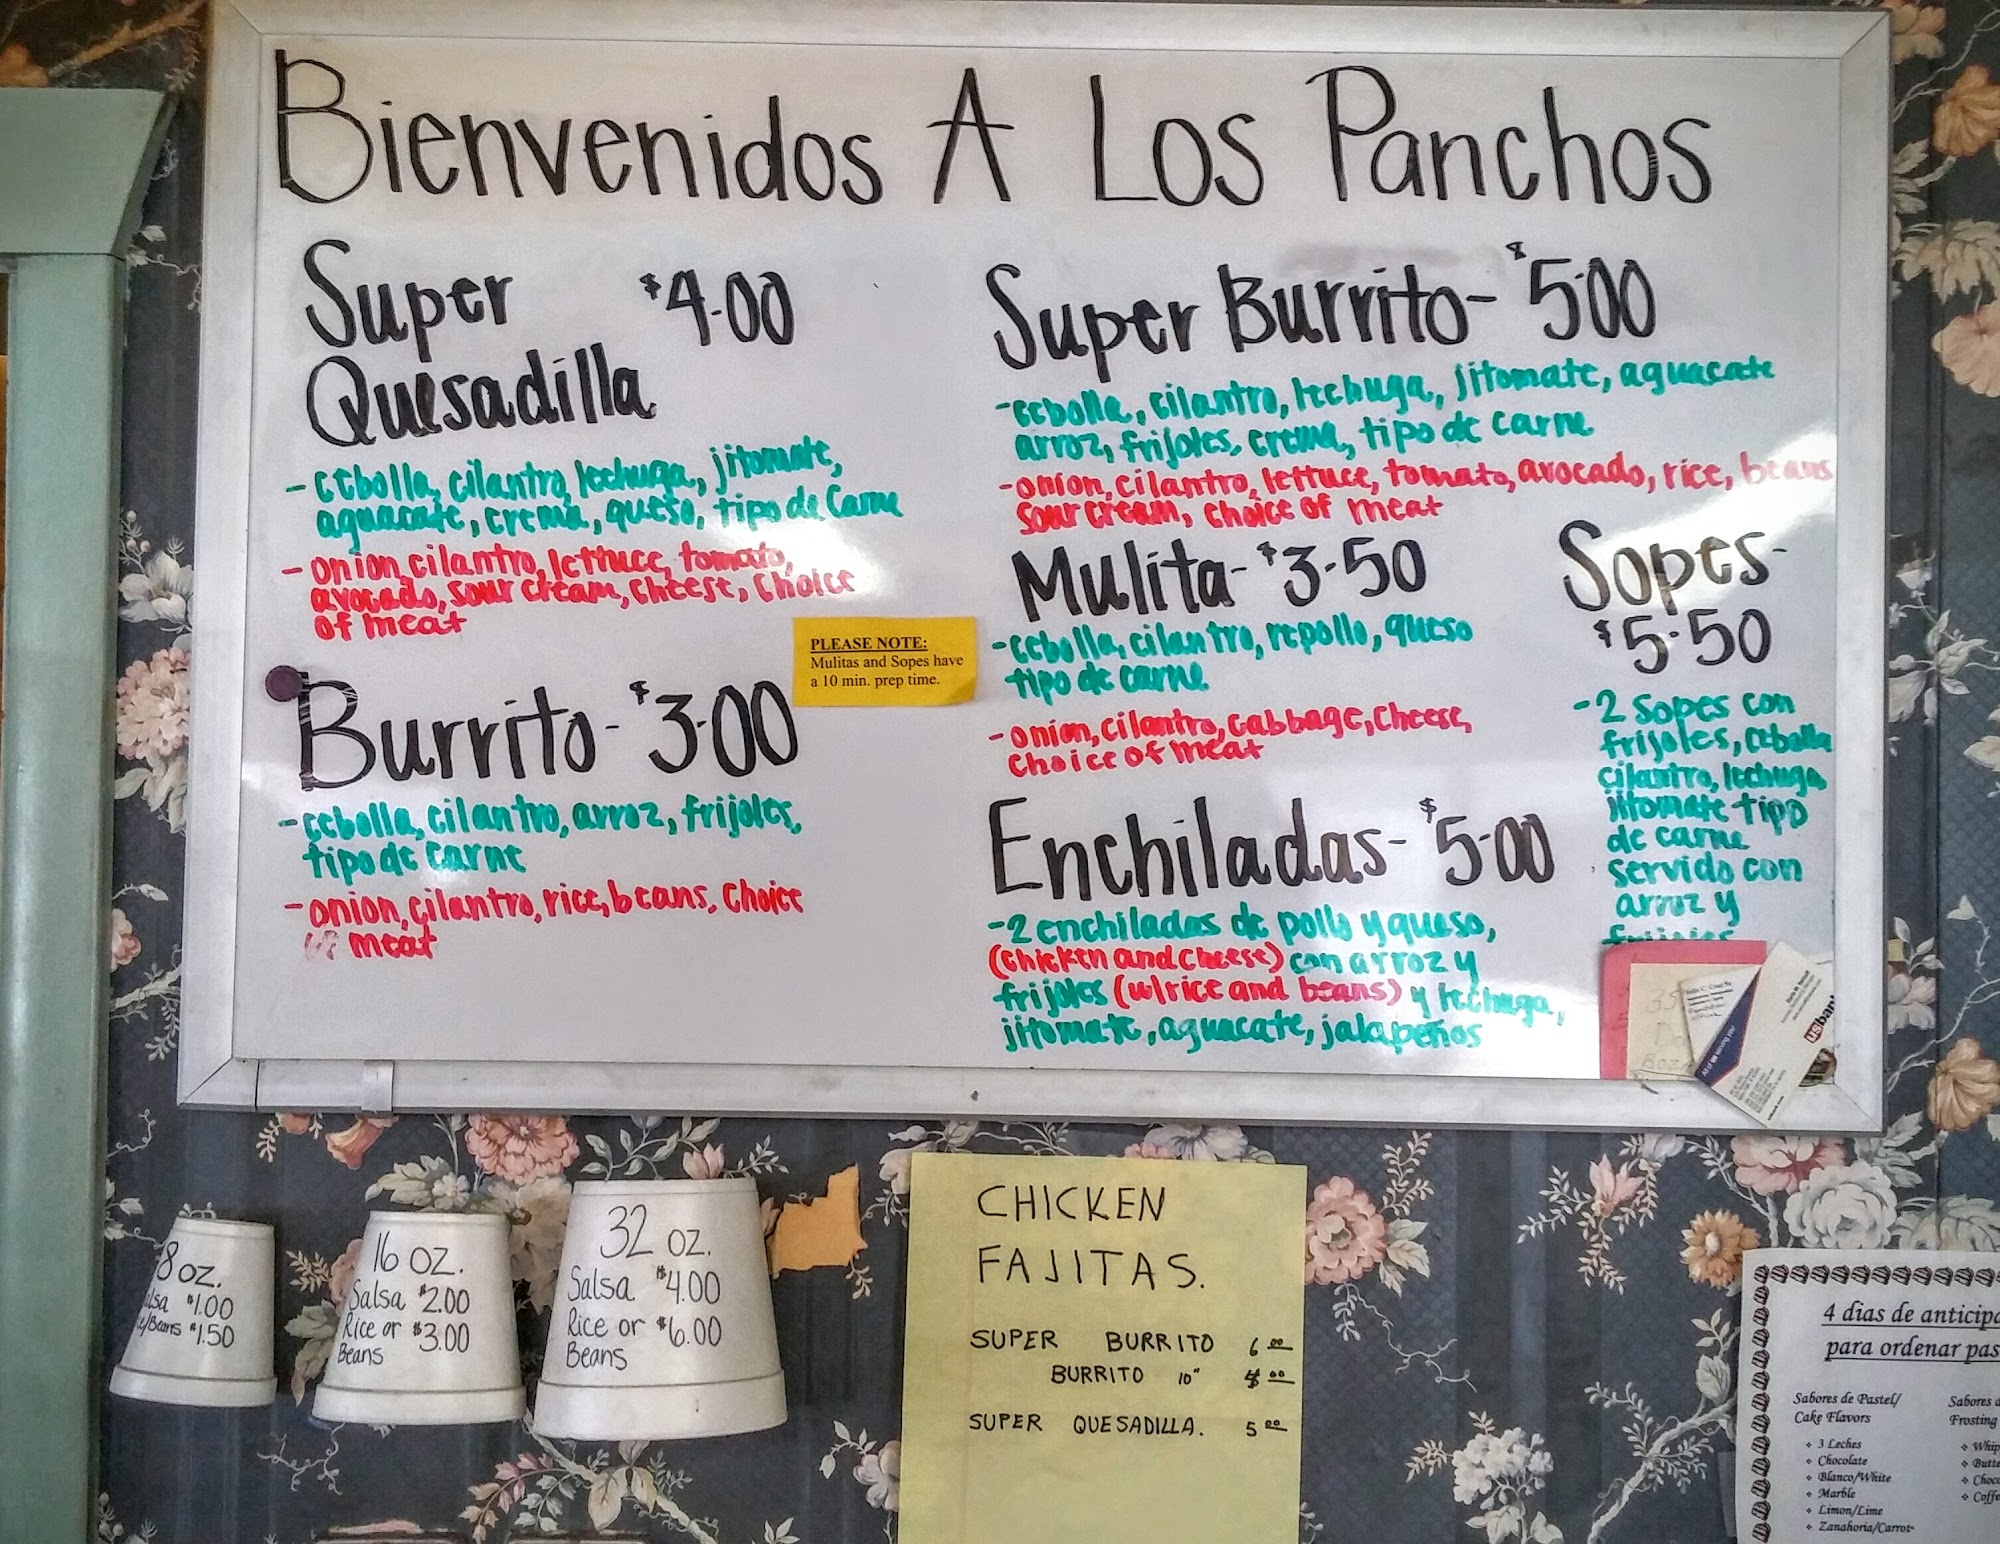 Bienvenidos A Los Panchos
Super $4.00
Quesadilla
- cebolla, cilantro, lechuga, jitomate,
aguacate, crema, queso, tipo de carne
- onion, cilantro, lettuce, tomato,
avocado, sour cream, cheese, choice
of meat
PLEASE NOTE:
Mulitas and Sopes have
a 10 min. prep time.
Burrito- $3.00
- cebolla, cilantro, arroz, frijoles,
tipo de carne
- onion, cilantro, rice, beans, choice
of meat
Super Burrito- $5.00
- cebolla, cilantro, lechuga, jitomate, aguacate
arroz, frijoles, crema, tipo de carne
- onion, cilantro, lettuce, tomato, avocado, rice, beans
sour cream, choice of meat
Mulita- $3.50
- cebolla, cilantro, repollo, queso
tipo de carne
- onion, cilantro, cabbage, cheese,
choice of meat
Sopes-
$5.50
- 2 sopes con
frijoles, cebolla
cilantro, lechuga,
jitomate tipo
de carne
servido con
arroz y
frijoles
Enchiladas- $5.00
- 2 enchiladas de pollo y queso,
(chicken and cheese) con arroz y
frijoles (w/rice and beans) y lechuga,
jitomate, aguacate, jalapeños
usbank
8 oz.
$1.00
$1.50
16 oz.
Salsa $2.00
Rice or $3.00
Beans
32 oz.
Salsa $4.00
Rice or $6.00
Beans
CHICKEN
FAJITAS.
SUPER BURRITO 6.00
BURRITO 10" 4.00
SUPER QUESADILLA. 5.00
4 dias de anticipa
para ordenar pas
Sabores de Pastel/
Cake Flavors
❖ 3 Leches
❖ Chocolate
❖ Blanco/White
❖ Marble
❖ Limon/Lime
❖ Zanahoria/Carrot
Sabores d
Frosting
❖ Whip
❖ Butte
❖ Choc
❖ Coffe